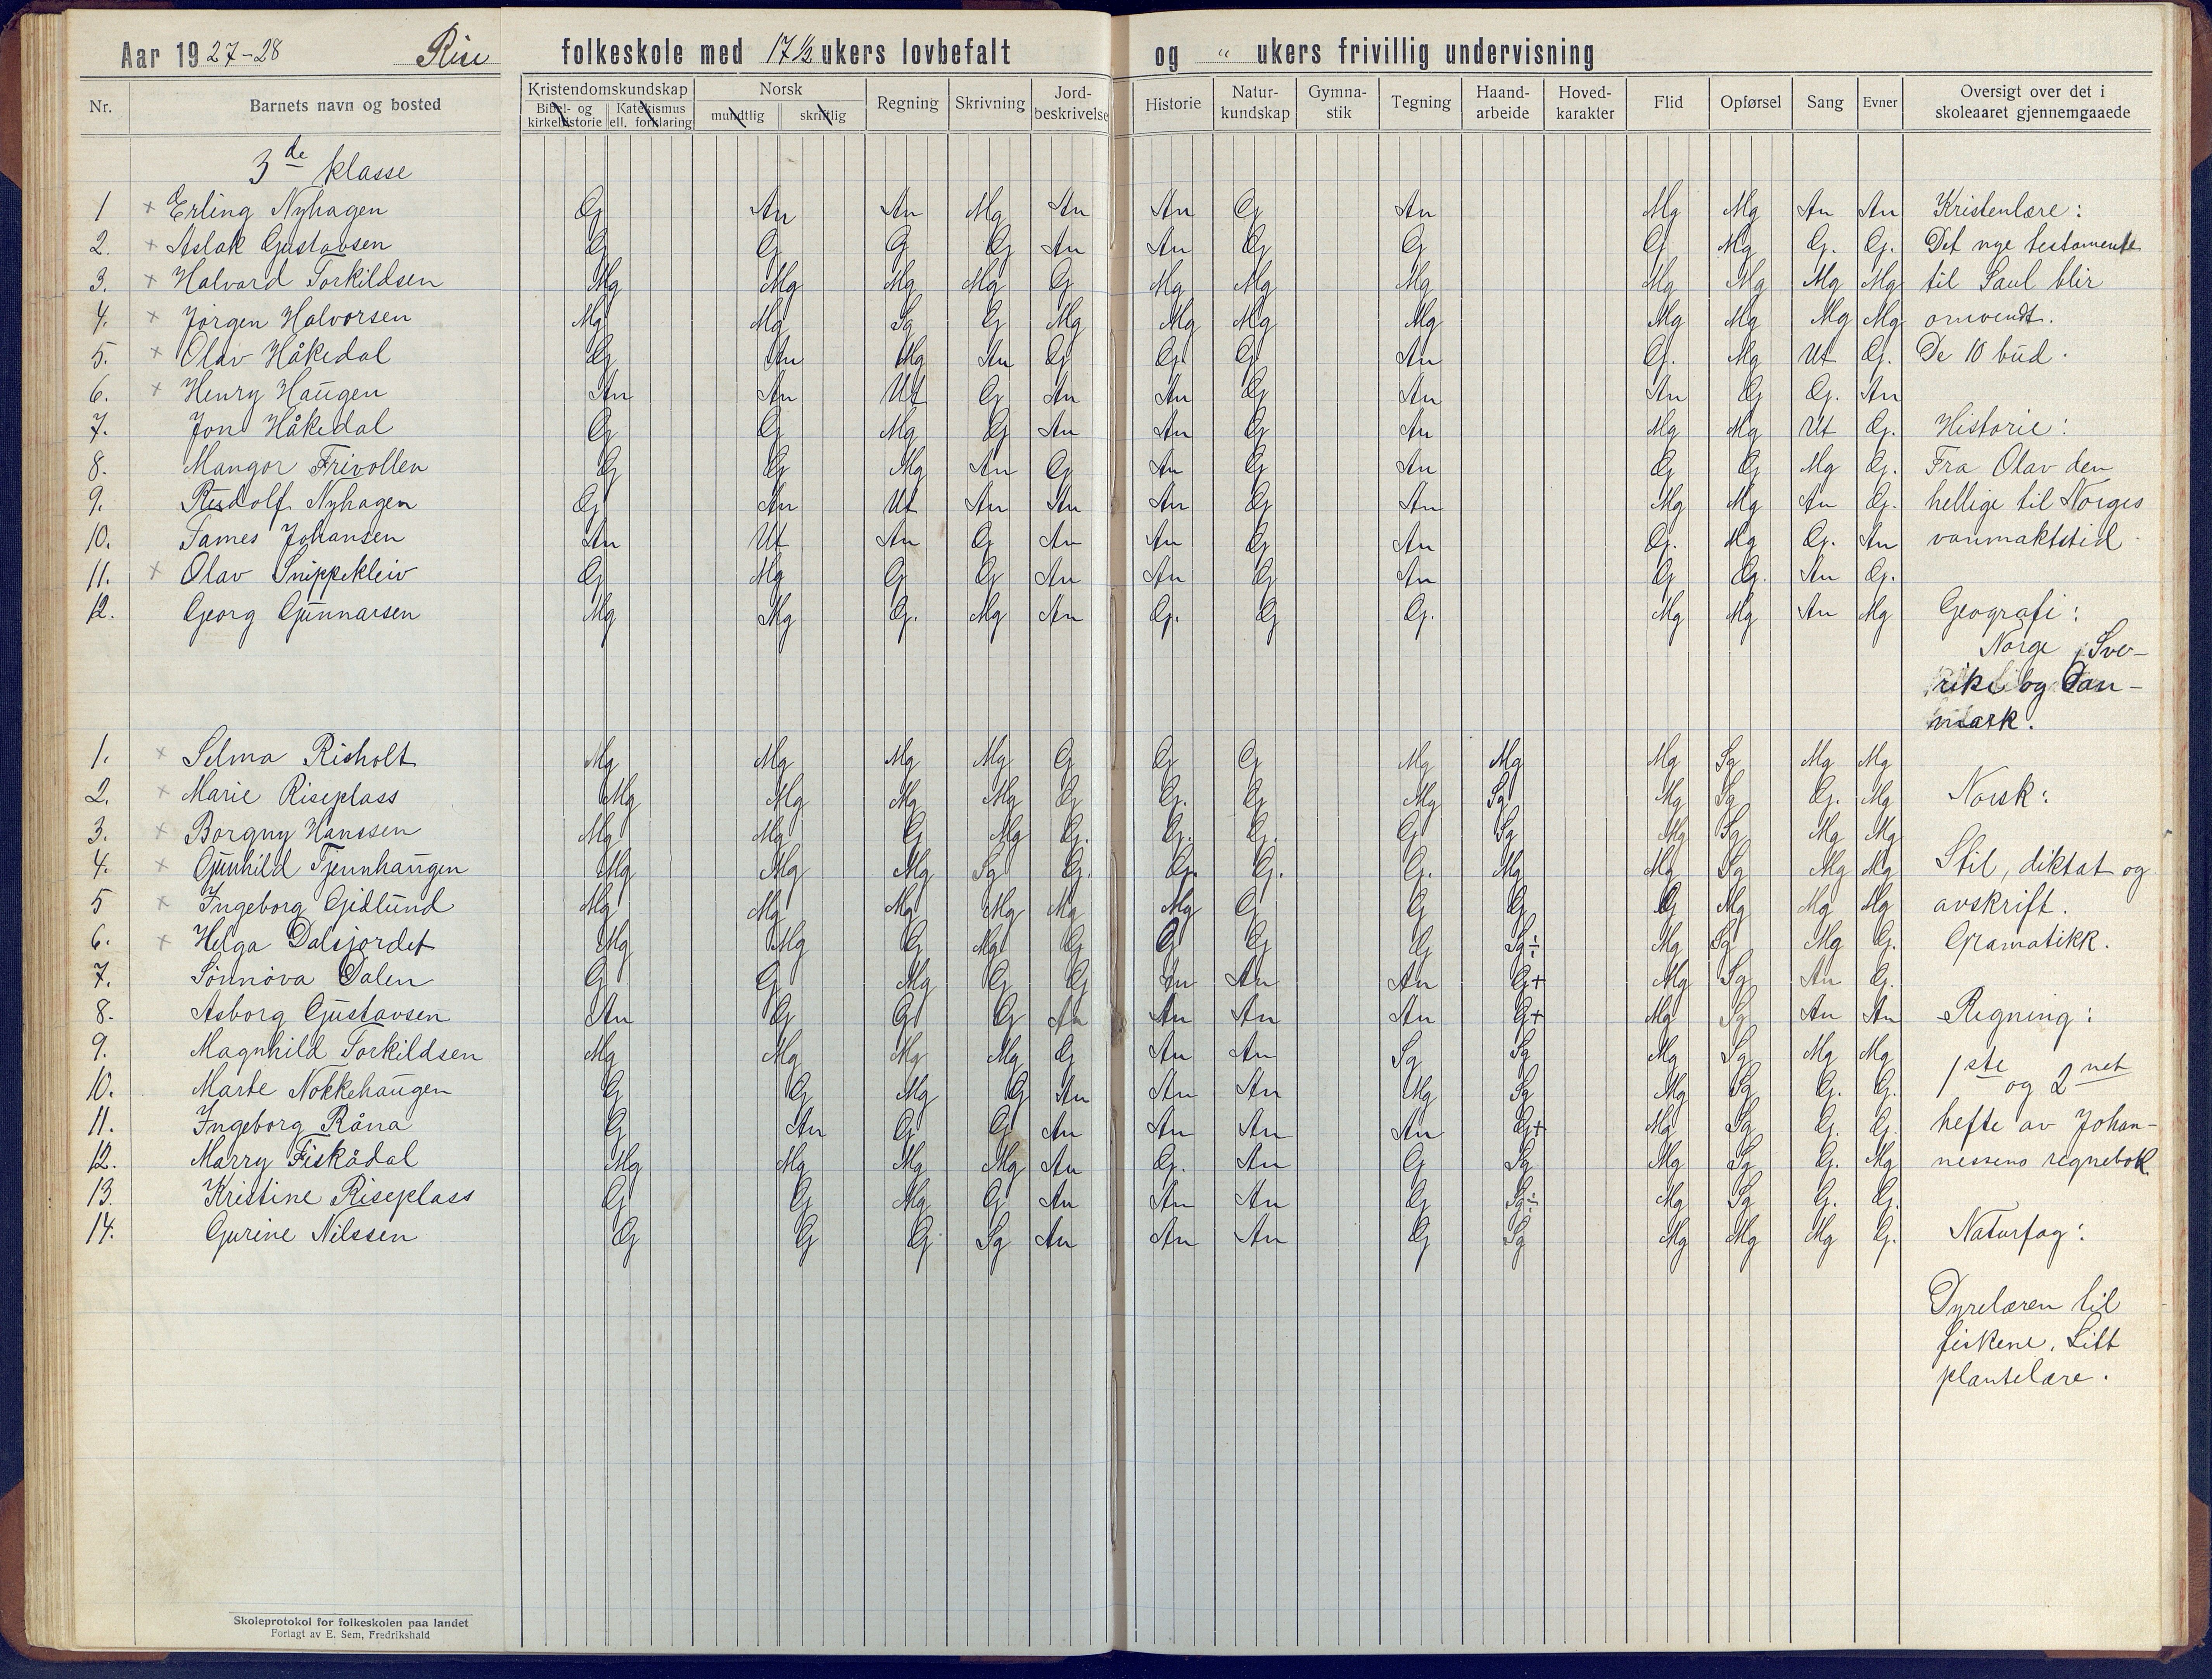 Aar 1927-28 Rise folkeskole med 17½ ukers lovbefalt og „ ukers frivillig undervisning
Nr. Barnets navn og bosted Kristendomskundskap Bibel- og kirkehistorie Katekismus ell. forklaring Norsk mundtlig skriftlig Regning Skrivning Jord-beskrivelse Historie Natur-kundskap Gymna-stik Tegning Haand-arbeide Hoved-karakter Flid Opførsel Sang Evner Oversigt over det i skoleaaret gjennemgaaede
3de klasse
1 × Erling Nyhagen G An An Mg An An G An Mg Mg An An Kristenlære:
2. × Aslak Gustavsen G G G G An An G G G Mg G. G. Det nye testamente
3. × Halvard Torkildsen Mg Mg Mg Mg G Mg Mg Mg Mg Mg Mg Mg til Saul blir
4. × Jørgen Halvorsen Mg Mg Sg G Mg Mg Mg Mg Mg Mg Mg Mg omvendt.
5. × Olav Håkedal G An Mg An G G. G An G. Mg Ut G. De 10 bud.
6. × Henry Haugen An An Ut G An An G An An G G. An
7. Jon Håkedal G G Mg G An An G An Mg Mg Ut G. Historie:
8. Mangor Frivollen G G Mg An G An G An G G Mg G. Fra Olav den
9. Rudolf Nyhagen G An Ut An An An G An Mg Mg An G. hellige til Norges
10. James Johansen An Ut An G An An G An G. Mg G. An vanmaktstid.
11. × Olav Snippekleiv G Mg G G An An G An G G. An G.
12. Georg Gunnarsen Mg Mg G. Mg An G. G G. Mg Mg An Mg Geografi:
Norge, Sve-
rike og Dan-
mark.
1. × Selma Risholt Mg Mg Mg Mg G G G Mg Mg Mg Sg Mg Mg
2. × Marie Riseplass Mg Mg Mg Mg G G. G Mg Sg Mg Sg G. Mg Norsk:
3. × Borgny Hanssen Mg Mg G Mg G. G. G. G Sg Mg Sg Mg Mg
4. × Gunhild Tjennhaugen Mg Mg Mg Sg G. G. G. G. Mg Mg Sg Mg Mg Stil, diktat og
5 × Ingeborg Gidlund Mg Mg Mg Mg Mg Mg G G G G Mg Mg Mg avskrift.
6. × Helga Dalsjordet Mg Mg G Mg G G G G Sg÷ Mg Sg Mg G. Gramatikk.
7. Sønnøva Dalen G G Mg G G An An An G+ Mg Sg An G.
8. Asborg Gustavsen An G G G An An An An G+ Mg Sg An An Regning:
9. Magnhild Torkildsen Mg Mg Mg Mg G An An Sg Sg Mg Sg Mg Mg 1ste og 2net
10. Marte Nokkehaugen G G Mg G An An An Mg Sg Mg Sg G. G.
11. Ingeborg Råna G An G G An An An An G+ Mg Sg G. G. hefte av Johan-
12. Marry Fiskådal Mg Mg Mg Mg An G. An G Sg Mg Sg G. Mg nessens regnebok.
13. Kristine Riseplass G G Mg G An An An G Sg÷ Mg Sg G. G.
14. Gurine Nilssen G G G Sg An An An G Sg Mg Mg Mg G. Naturfag:
Dyrelæren til
fiskene. Litt
plantelære.
Skoleprotokol for folkeskolen paa landet
Forlagt av E. Sem, Fredrikshald